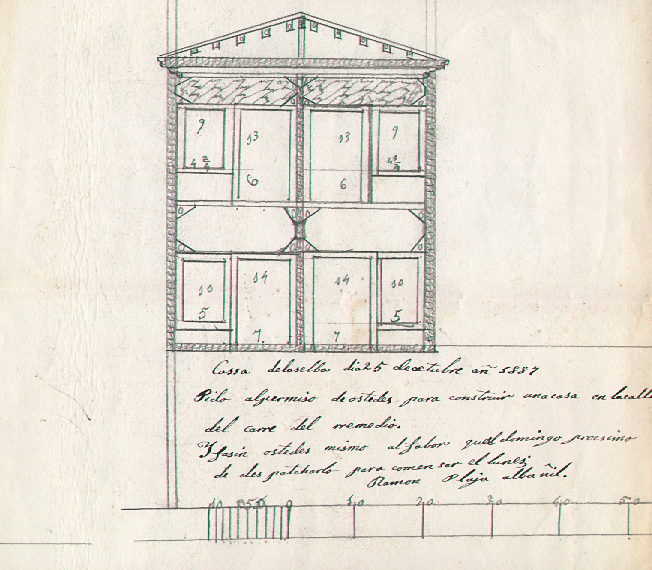 9 13 13 9
4 2/4 6 6 4 2/4
10 14 14 10
5 7 7 5
Cassa delaselba dia 25 deoctubre añ 1887
Pido alpermiso de ostedes para construir unacasa en lacalle
del carre del rremedio.
Y fasin ostedes mismo al fabor quel domingo procsimo
de des patcharlo para comensar el lunes;
Ramon Plaja albañil.
10 5 0 10 20 30 40 50